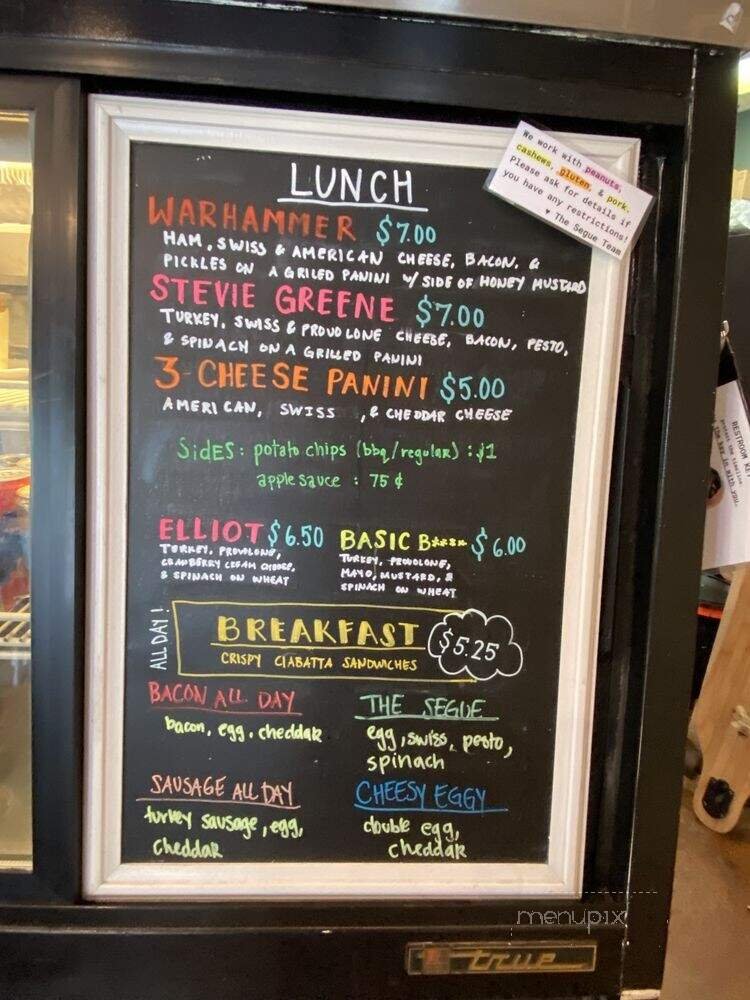 We work with peanuts,
cashews, gluten, & pork.
Please ask for details if
you have any restrictions!
♥ The Segue Team
LUNCH
WARHAMMER $7.00
HAM, SWISS & AMERICAN CHEESE, BACON, &
PICKLES ON A GRILED PANINI W/ SIDE OF HONEY MUSTARD
STEVIE GREENE $7.00
TURKEY, SWISS & PROVOLONE CHEESE, BACON, PESTO,
& SPINACH ON A GRILLED PANINI
3 CHEESE PANINI $5.00
AMERICAN, SWISS , & CHEDDAR CHEESE
SidES: potato chips (bbq/regular) : $1
apple sauce : 75¢
ELLIOT $6.50
TURKEY, PROVOLONE,
CRANBERRY CREAM CHEESE,
& SPINACH ON WHEAT
BASIC B**** $6.00
TURKEY, PROVOLONE,
MAYO, MUSTARD, &
SPINACH ON WHEAT
ALL DAY!
BREAKFAST $5.25
CRISPY CIABATTA SANDWICHES
BACON ALL DAY
bacon, egg, cheddar
THE SEGUE
egg, swiss, pesto,
spinach
SAUSAGE ALL DAY
turkey sausage, egg,
cheddar
CHEESY EGGY
double egg,
cheddar
RESTROOM KEY
the key is with you.
menupix
true